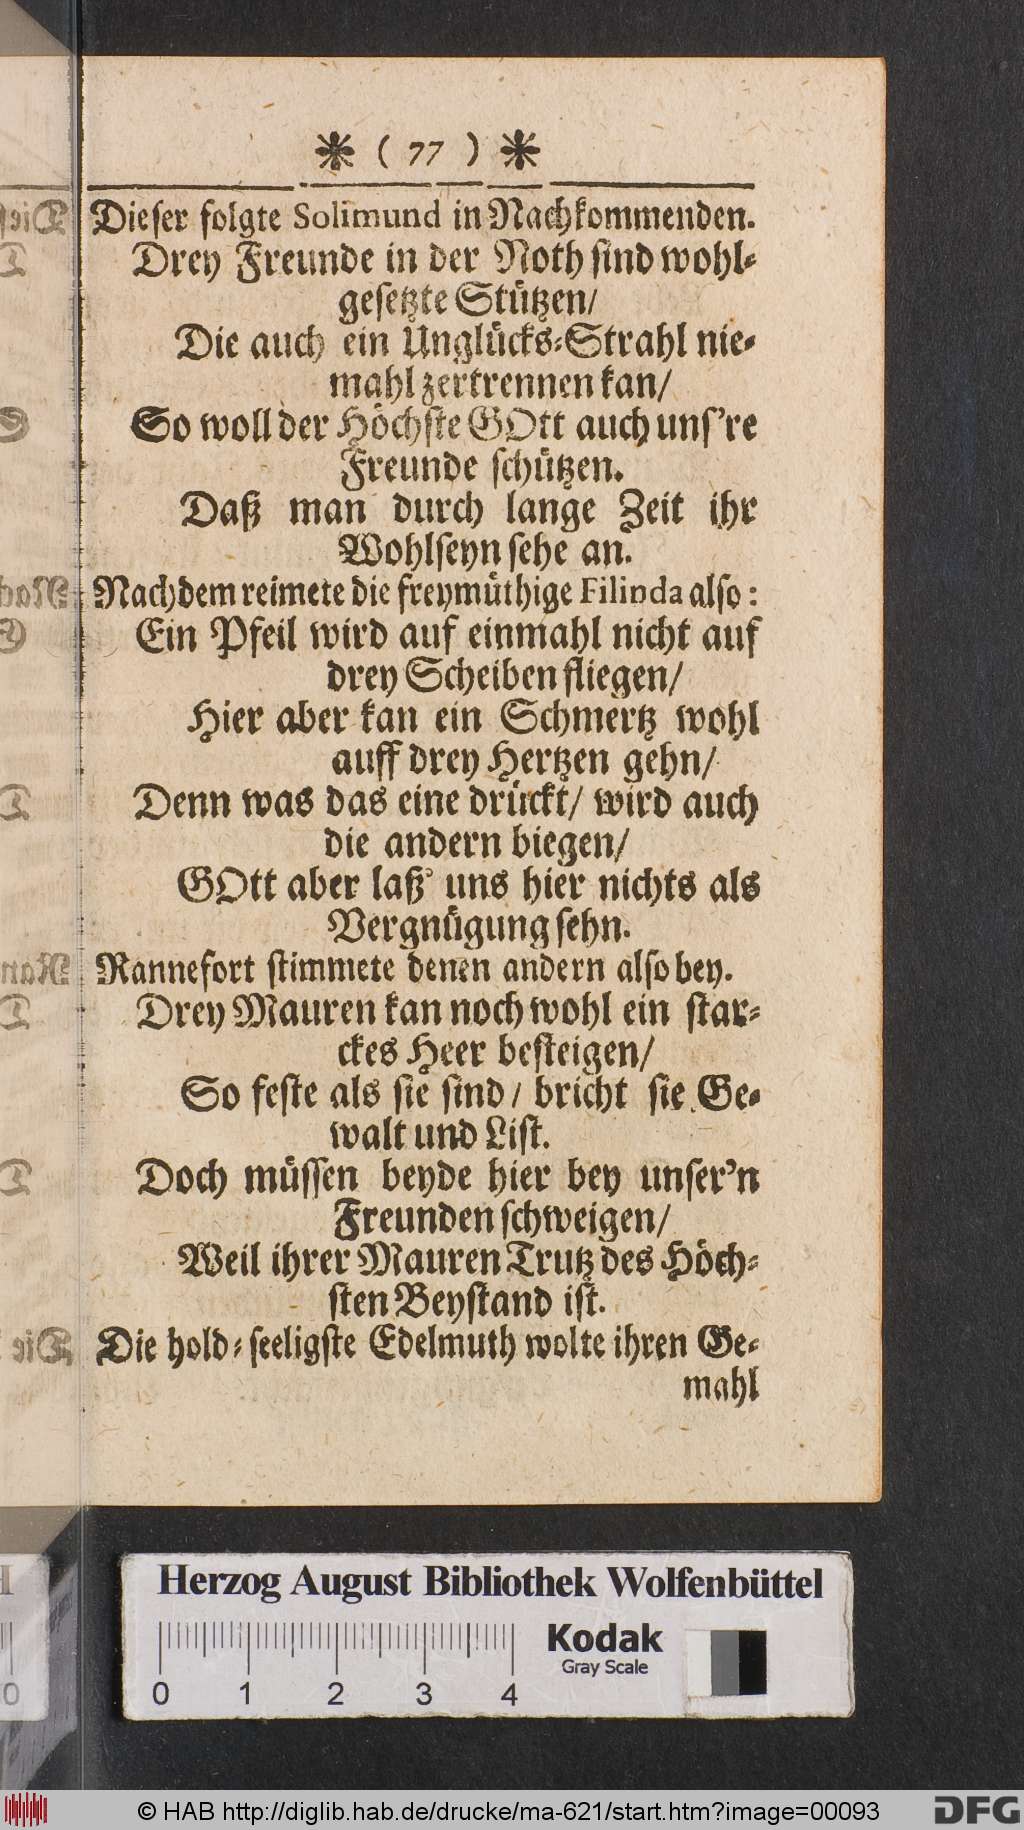 * ( 77 ) *
Dieser folgte Solimund in Nachkommenden.
Drey Freunde in der Noth sind wohl-
gesetzte Stützen/
Die auch ein Unglücks-Strahl nie-
mahl zertrennen kan/
So woll der Höchste GOtt auch uns're
Freunde schützen.
Daß man durch lange Zeit ihr
Wohlseyn sehe an.
Nachdem reimete die freymüthige Filinda also:
Ein Pfeil wird auf einmahl nicht auf
drey Scheiben fliegen/
Hier aber kan ein Schmertz wohl
auff drey Hertzen gehn/
Denn was das eine drückt/ wird auch
die andern biegen/
GOtt aber laß' uns hier nichts als
Vergnügung sehn.
Rannefort stimmete denen andern also bey.
Drey Mauren kan noch wohl ein star-
ckes Heer besteigen/
So feste als sie sind/ bricht sie Ge-
walt und List.
Doch müssen beyde hier bey unser'n
Freunden schweigen/
Weil ihrer Mauren Trutz des Höch-
sten Beystand ist.
Die hold-seeligste Edelmuth wolte ihren Ge-
mahl
Herzog August Bibliothek Wolfenbüttel
Kodak
Gray Scale
0 1 2 3 4
© HAB http://diglib.hab.de/drucke/ma-621/start.htm?image=00093
DFG